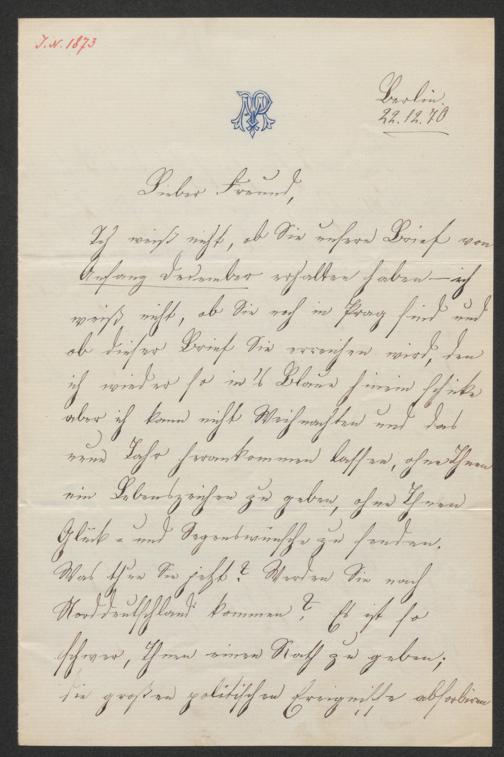 J.N. 1873
Berlin.
22.12.70
Lieber Freund,
Ich weiß nicht, ob Sie unsere Brief von
Anfang December erhalten haben – ich
weiß nicht, ob Sie noch in Prag sind und
ob dieser Brief Sie erreichen wird, den
ich wieder so in's Blaue hinein schicke
aber ich kann nicht Weihnachten und das
neue Jahr herankommen lassen, ohne Ihnen
ein Lebenszeichen zu geben, ohne Ihnen
Glück- und Segenswünsche zu senden.
Was thun Sie jetzt? Werden Sie nach
Norddeutschland kommen? Es ist so
schwer, Ihnen einen Rath zu geben;
die großen politischen Ereignisse absorbiren